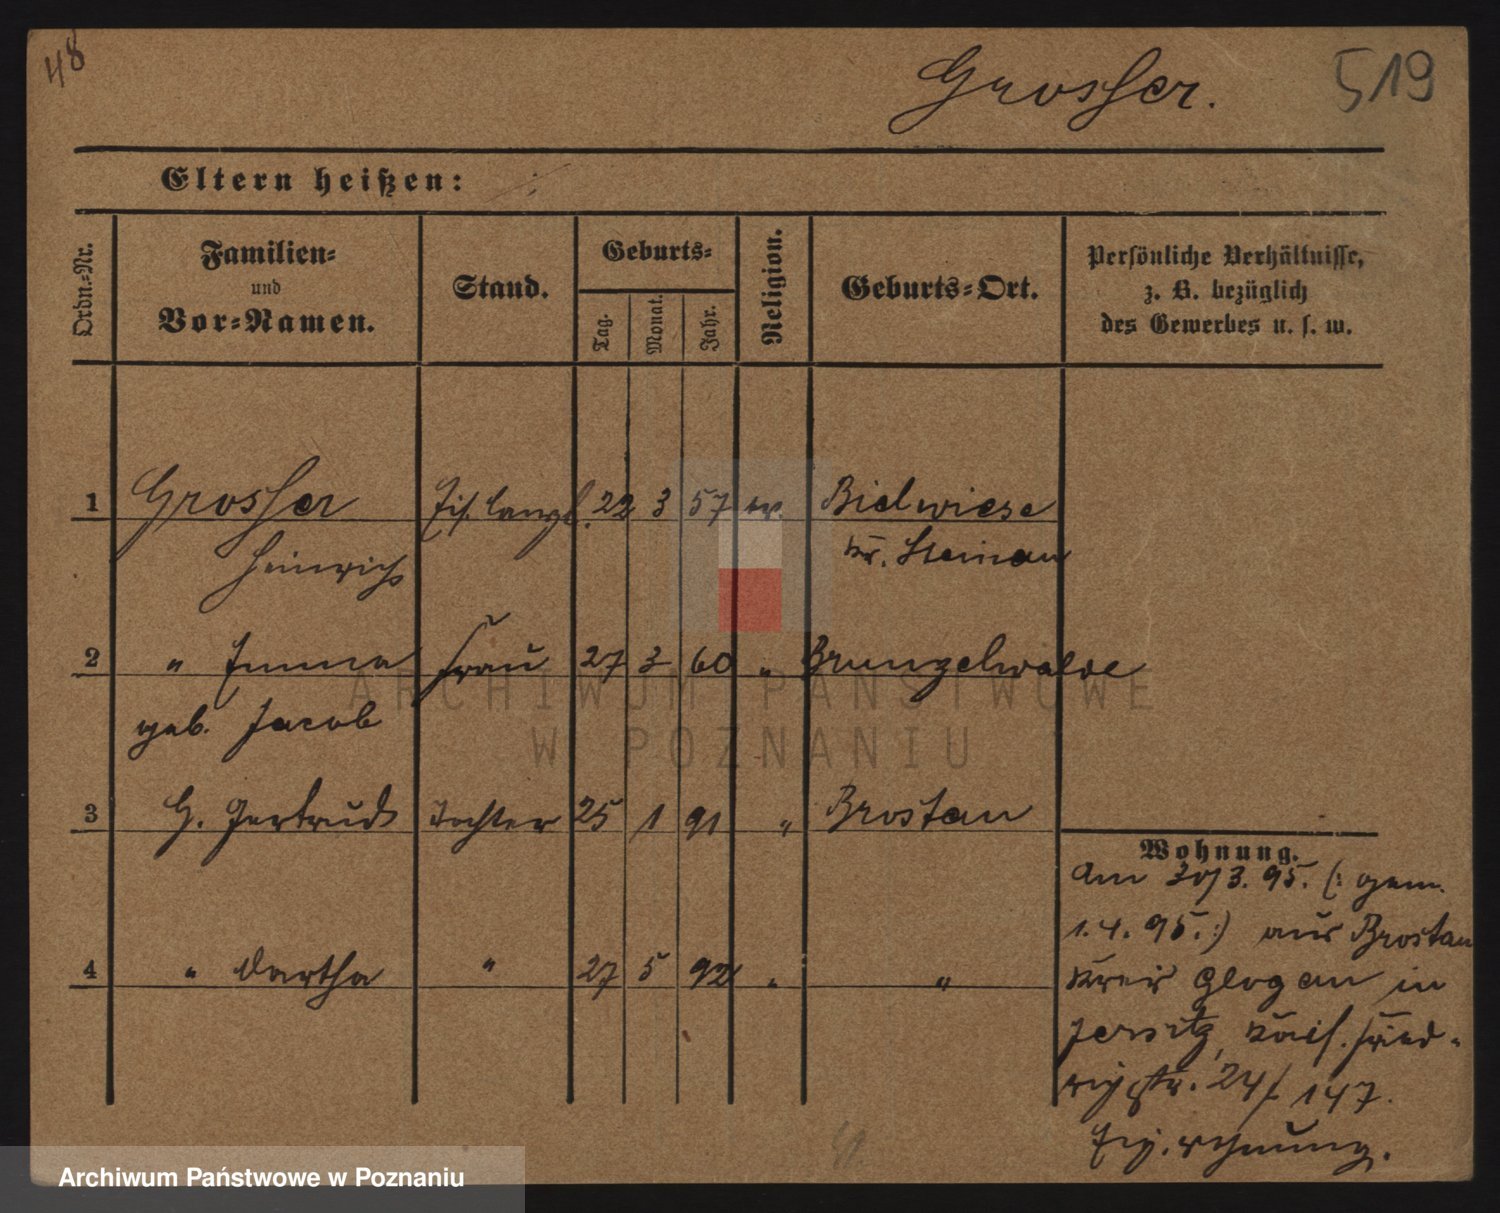 48
Grosser.
519
Eltern heißen:
Ordn.=Nr.
Familien=
und
Vor=Namen.
Stand.
Geburts=
Tag.
Monat.
Jahr.
Religion.
Geburts=Ort.
Persönliche Verhältnisse,
z. B. bezüglich
des Gewerbes u. s. w.
1 Grosser 22 3 57 ev. Bielwiese
Heinrich Kr. Steinau
2 " Emma Frau 27 3 60 " Brungelwalde
geb. Jacob
3 G. Gertrud Tochter 25 1 91 " Brostau
4 " Martha " 27 5 92 " "
Wohnung.
am 30/3. 95. (: gem.
1.4. 95. :) aus Brostau
Kreis Glogau in
Jersitz, Kais. Fried-
richstr. 24/147.
Eig. Wohnung.
ARCHIWUM PAŃSTWOWE
W POZNANIU
Archiwum Państwowe w Poznaniu